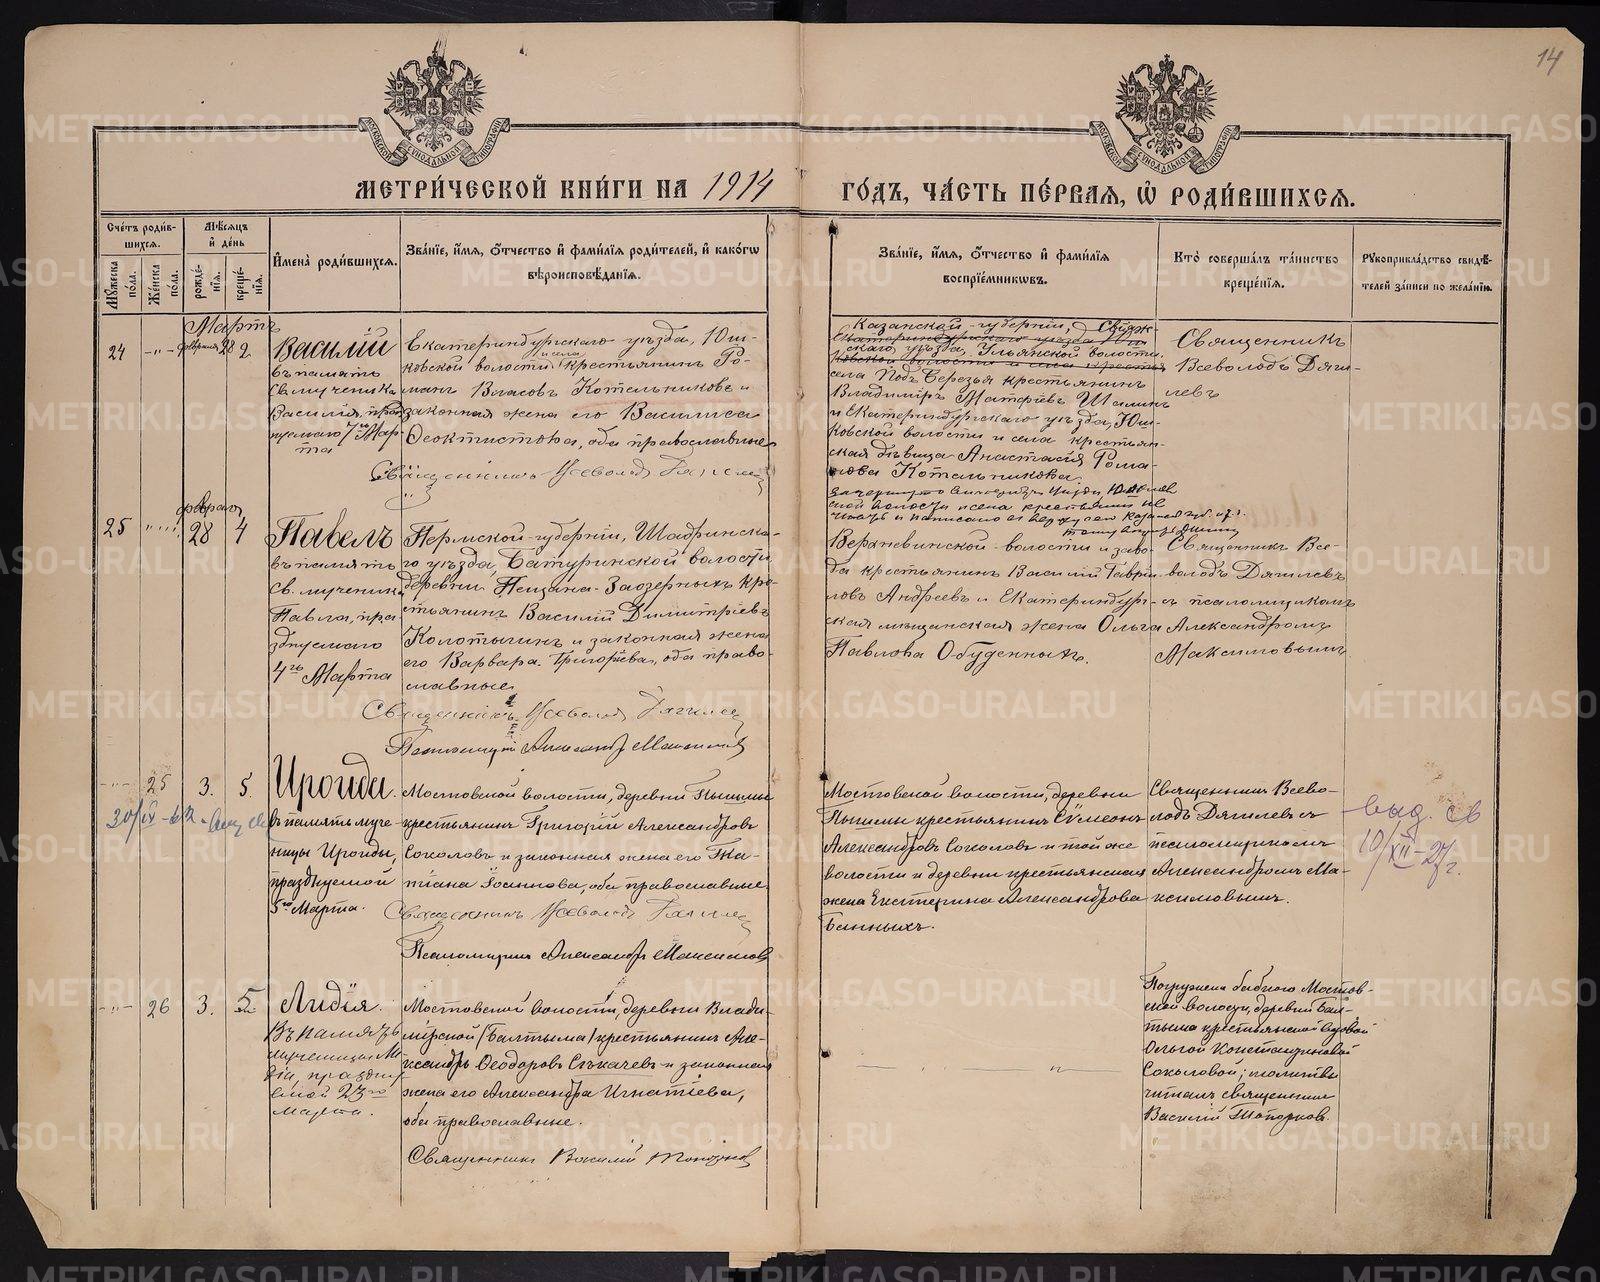 14
МОСКОВСКОЙ СѴНОДАЛЬНОЙ ТИПОГРАФІИ
МОСКОВСКОЙ СѴНОДАЛЬНОЙ ТИПОГРАФІИ
МЕТРИ́ЧЕСКОЙ КНИ́ГИ НА 1914
ГО́ДЪ, ЧА́СТЬ ПЕ́РВАЯ, Ѽ РОДИ́ВШИХСЯ.
Сче́тъ роди́в-
шихся.
Мꙋ́жеска по́ла.
Же́нска по́ла.
Мѣ́сяцъ
и҆ де́нь
рожде́нія.
креще́нія.
И҆мена̀ роди́вшихся.
Зва́ніе, и҆́мя, ѻ҆́тчество и҆ фами́лія роди́телей, и҆ како́гѡ
вѣроисповѣ́данія.
Зва́ніе, и҆́мя, ѻ҆́тчество и҆ фами́лія
воспріе́мниковъ.
Кто̀ соверша́лъ та́инство
креще́нія.
Рꙋкоприкла́дство свидѣ́-
телей за́писи по жела́нію.
Мартъ
24 -"- февраля 28 2
Василій
въ память
Св. мученика
Василія, праз
днуемаго 7го Мар-
та
Екатеринбургскаго уѣзда, Юш-
ковской волости и села крестьянинъ Ро-
манъ Власовъ Котельниковъ и
законная жена его Василиса
Ѳеоктистова, оба православные
Священникъ Всеволодъ Дягилев
Казанской губерніи, Свіяж-
скаго уѣзда, Ульянской волости
села Подъ Березья крестьянинъ
Владиміръ Матфіевъ Шалинъ
и Екатеринбургскаго уѣзда, Юш-
ковской волости и села крестьян-
ская дѣвица Анастасія Рома-
нова Котельникова.
Священникъ
Всеволодъ Дяги-
левъ
февраль
25 " " " 28 4
Павелъ
въ память
Св. мученика
Павла, пра
зднуемаго
4го Марта
Пермской губерніи, Шадринска-
го уѣзда, Батуринской волости
деревни Пещана-Заозерныхъ кре-
стьянинъ Василій Димитріевъ
Колотыгинъ и законная жена
его Варвара Григоріева, оба право-
славные
Священникъ Всеволодъ Дягилев
Псаломщикъ Александръ Максимовъ
Верхневинской волости и заво-
да крестьянинъ Василій Гаврі-
ловъ Андреевъ и Екатеринбург-
ская мѣщанская жена Ольга
Павлова Обуденныхъ.
Священникъ Все-
володъ Дягилевъ
съ псаломщикомъ
Александромъ
Максимовымъ
-"- 25 3. 5.
30/IX-62
Ироида.
въ память муче-
ницы Ироиды,
празднуемой
5го Марта.
Мостовской волости, деревни Пышмы
крестьянинъ Григорій Александровъ
Соколовъ и законная жена его Та-
тіана Іоаннова, оба православные.
Священникъ Всеволодъ Дягилев
Псаломщикъ Александръ Максимовъ
Мостовской волости, деревни
Пышмы крестьянинъ Сѵмеонъ
Александровъ Соколовъ и той же
волости и деревни крестьянская
жена Екатерина Александрова
Банныхъ.
Священникъ Всево-
лодъ Дягилевъ съ
псаломщикомъ
Александромъ Ма-
ксимовымъ.
выд. св
10/XII-27 г.
-"- 26 3. 5
Лидія.
Въ память
мученицы Ли
діи, праздну
емой 23го
марта.
Мостовской волости, деревни Влади-
мірской (Балтыма) крестьянинъ Але-
ксандръ Ѳеодоровъ Съкачевъ и законная
жена его Александра Игнатіева,
оба православные.
Священникъ Василій Топорковъ
- " -
Погружена бабкою Мостов-
ской волости, деревни Бал-
тыма крестьянской вдовой
Ольгой Константиновой
Соколовой; молитвы
читалъ священникъ
Василій Топорковъ.